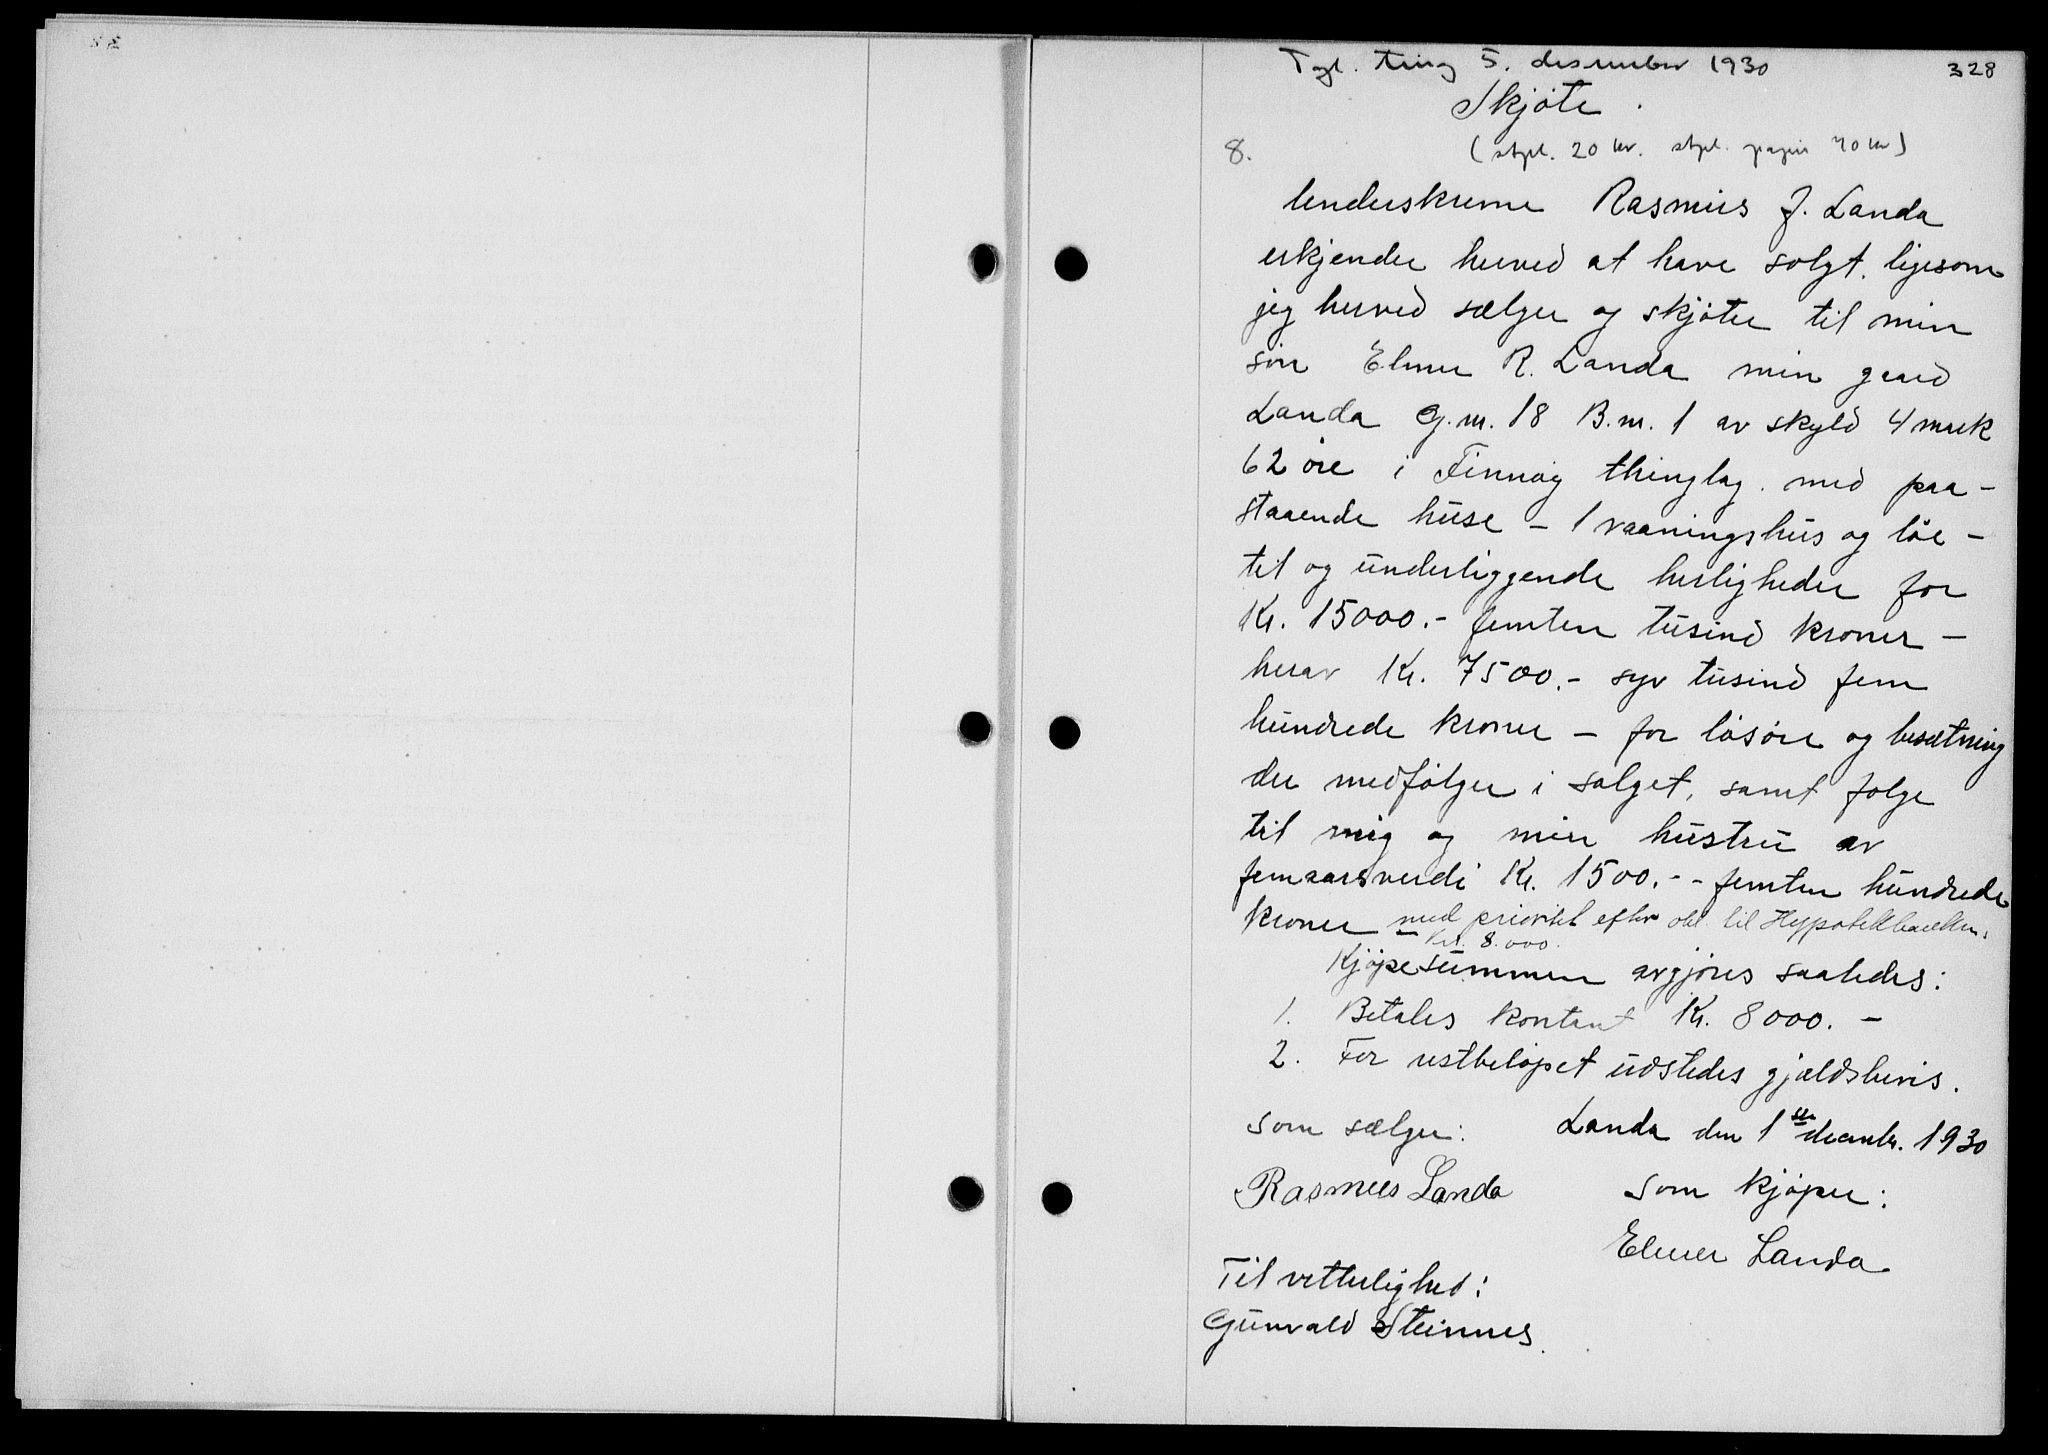 Tgl. ting 5. desember 1930
328
Skjøte.
8.
(stpl. 20 kr. stpl. papir 40 kr)
Underskrevne Rasmus J. Landa
erkjender herved at have solgt, ligesom
jeg herved sælger og skjøter til min
søn Elmer R. Landa min gaard
Landa G.nr. 18 B.nr. 1 av skyld 4 mark
62 øre i Finnøy thinglag med paa-
staaende huse – 1 vaaningshus og løe –
til og underliggende herligheder for
Kr. 15000.- femten tusind kroner –
herav Kr. 7500.- syv tusind fem
hundrede kroner – for løsøre og besætning
der medfølger i salget, samt følge
til mig og min hustru av
femaarsverdi Kr. 1500.- - femten hundrede
kroner med prioritet efter obl. til Hypotekbanken,
kr. 8.000.
Kjøpesummen avgjøres saaledes:
1. Betales kontant Kr. 8000. –
2. For restbeløpet udstedes gjældsbevis.
Som sælger: Landa den 1ste decembr. 1930
Rasmus Landa som kjøper:
Elmer Landa
Til vitterlighed:
Gunvald Steinnes.